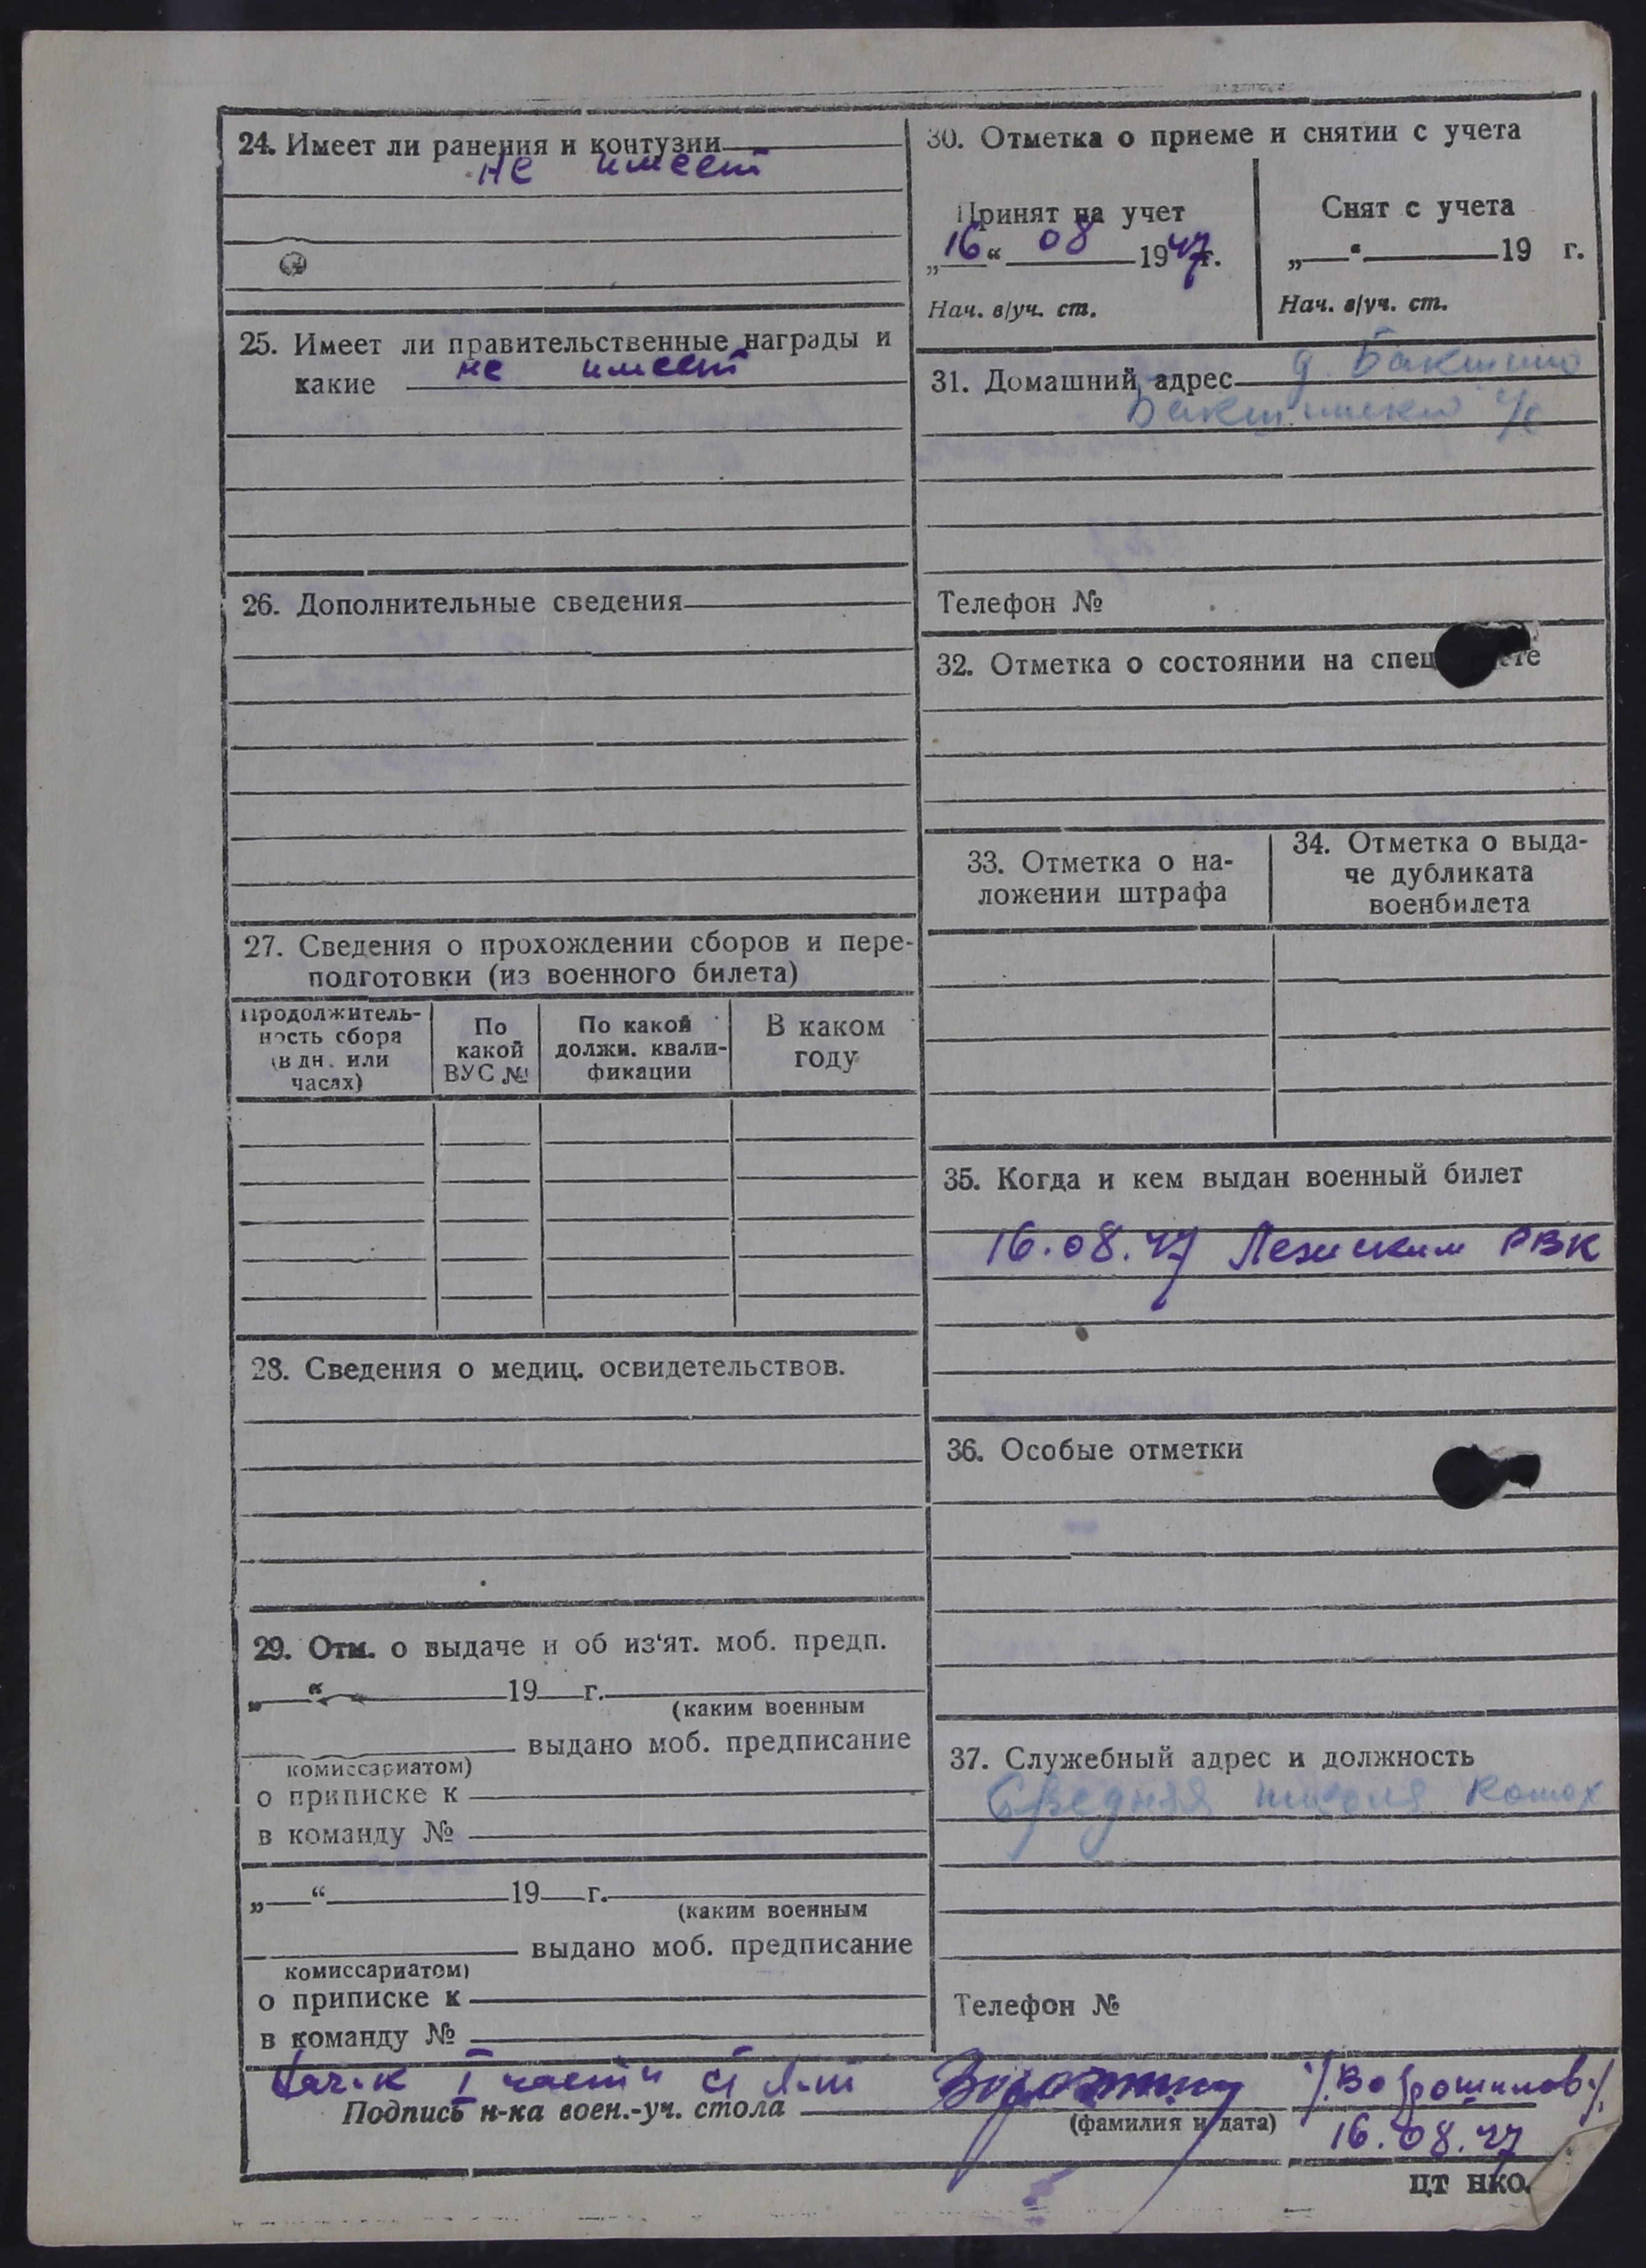 24. Имеет ли ранения и контузии
не имеет
25. Имеет ли правительственные награды и
какие не имеет
26. Дополнительные сведения
27. Сведения о прохождении сборов и пере-
подготовки (из военного билета)
Продолжитель-
ность сбора
(в дн. или
часах)
По
какой
ВУС №
По какой
должн. квали-
фикации
В каком
году
28. Сведения о медиц. освидетельствов.
29. Отм. о выдаче и об из‘ят. моб. предп.
„ “ 19 г.
(каким военным
выдано моб. предписание
комиссариатом)
о приписке к
в команду №
„ “ 19 г.
(каким военным
выдано моб. предписание
комиссариатом)
о приписке к
в команду №
30. Отметка о приеме и снятии с учета
Принят на учет
„16“ 08 1947г.
Нач. в/уч. ст.
Снят с учета
„ “ 19 г.
Нач. в/уч. ст.
31. Домашний адрес д. Бакшино
с/с
Телефон №
32. Отметка о состоянии на спец
33. Отметка о на-
ложении штрафа
34. Отметка о выда-
че дубликата
военбилета
35. Когда и кем выдан военный билет
16.08.47 РВК
36. Особые отметки
37. Служебный адрес и должность
Средняя школа
Телефон №
Нач-к I части л-т /Ворошилов/
Подпись н-ка воен.-уч. стола
(фамилия и дата) 16.08.47
ЦТ НКО.